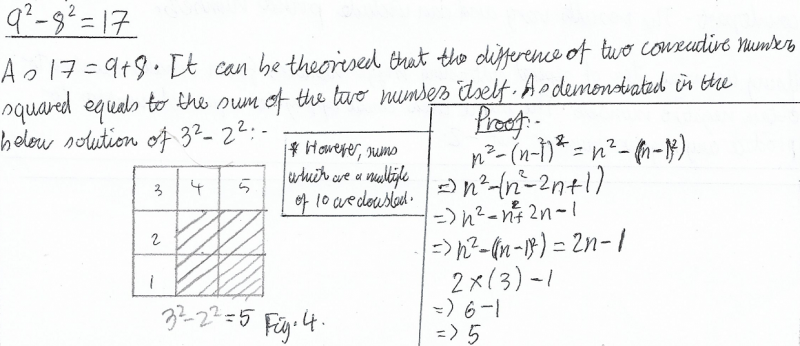 9² - 8² = 17
As 17 = 9+8. It can be theorised that the difference of two consecutive numbers
squared equals to the sum of the two numbers itself. As demonstrated in the
below solution of 3² - 2² :-
* However, sums
which are a multiple
of 10 are doubled.
3 4 5
2
1
3² - 2² = 5 Fig. 4.
Proof:-
n² - (n-1)² = n² - (n-1)²)
=> n² - (n² - 2n + 1)
=> n² - n² + 2n - 1
=> n² - ((n-1)²) = 2n - 1
2 × (3) - 1
=> 6 - 1
=> 5